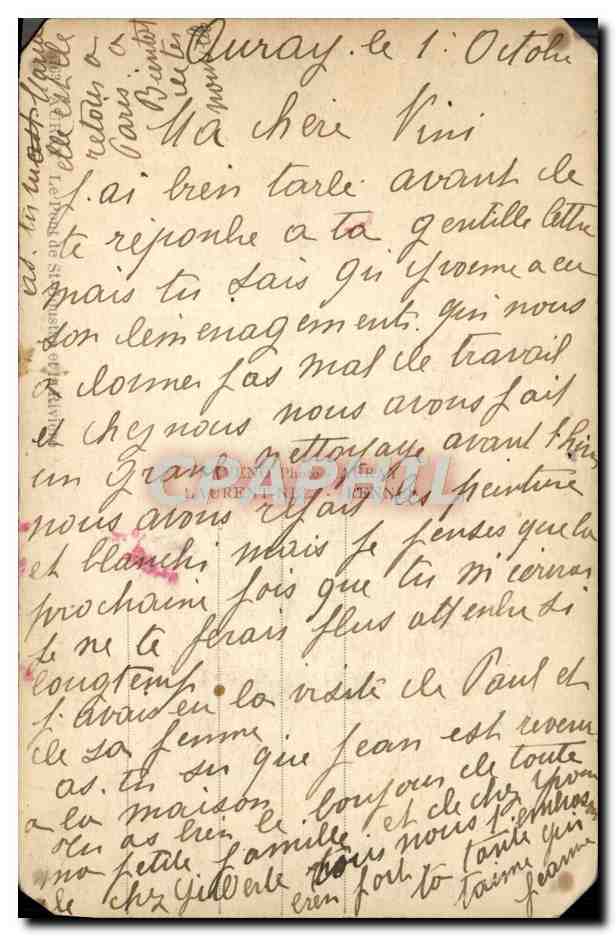 Auray. le 1. Octobre
Ma chère Nini
J'ai bien tardé avant de
te répondre a ta gentille lettre
mais tu sais qu'Yvonne a eu
son déménagement. qui nous
a donner pas mal de travail
et chez nous nous avons fait
un grand nettoyage avant l'hiver
nous avons refait les peinture
et blanchi mais je penses que la
prochaine fois que tu m'ecriras
je ne te ferais plus attendre si
longtemps
j'avais eu la visite de Paul et
de sa femme
as. tu su que Jean est revenu
a la maison
tu as bien le bonjour de toute
ma petite famille et de chez Yvonne
de chez Gilberte tous nous t'embrassons
bien fort
ta tante qui
t'aime
Jeanne
as. tu
elle est de
retour a
Paris. a
Bientôt
de tes
nouvelles
Le Pont de St-Goustan et la Rivière
LAURENT-NEL - RENNES
CPAPHIL